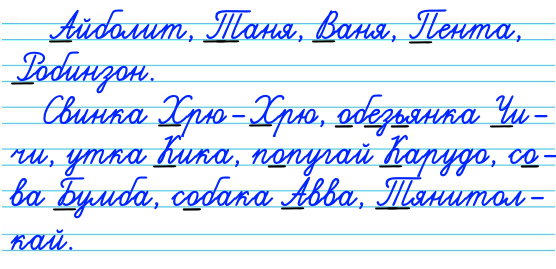 Айболит, Таня, Ваня, Пента,
Робинзон.
Свинка Хрю-Хрю, обезьянка Чи-
чи, утка Кика, попугай Карудо, со-
ва Бумба, собака Авва, Тянитол-
кай.